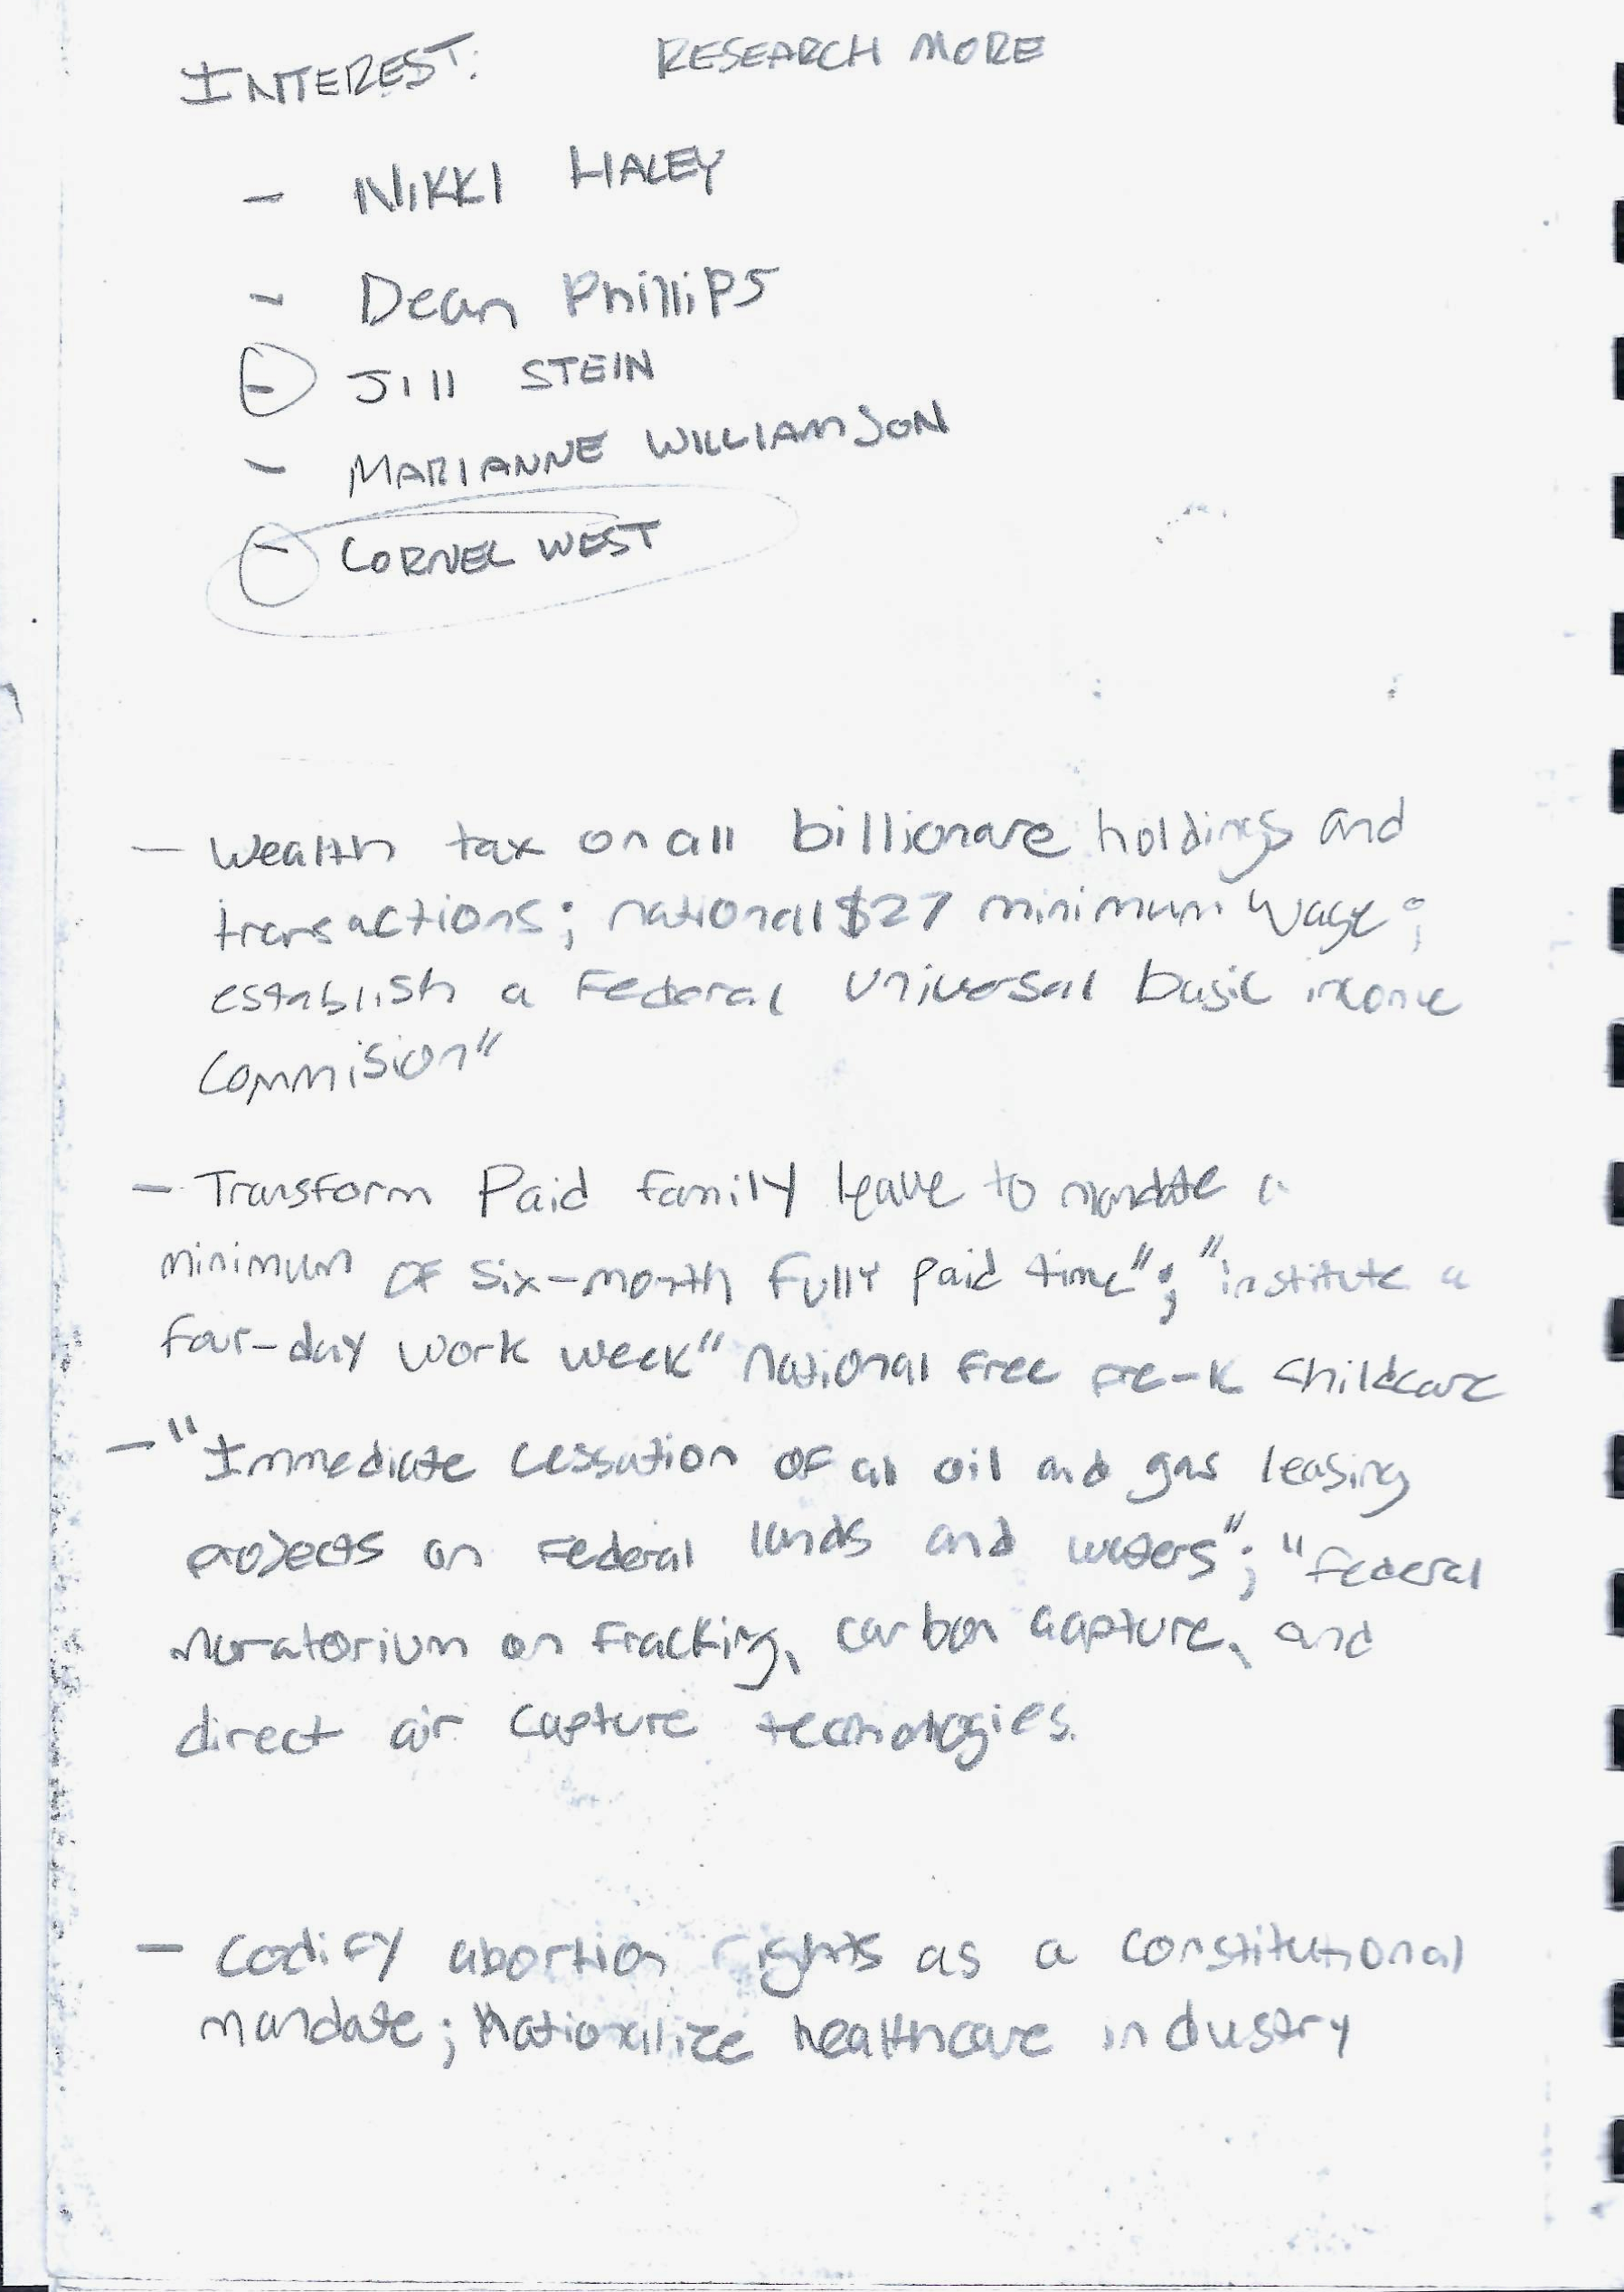 INTEREST: RESEARCH MORE
- NIKKI HALEY
- Dean Phillips
- Jill STEIN
- MARIANNE WILLIAMSON
- CORNEL WEST
- Wealth tax on all billionare holdings and
transactions; national $27 minimum wage;
establish a Federal Universal basic income
Commision"
- Transform Paid family leave to mandate a
minimum of six-month fully paid time"; "institute a
four-day work week" National free pre-k childcare
- "Immediate cessation of all oil and gas leasing
projects on Federal lands and waters"; "Federal
moratorium on fracking, carbon capture, and
direct air capture technologies.
- Codify abortion rights as a constitutional
mandate; Nationalize healthcare industry